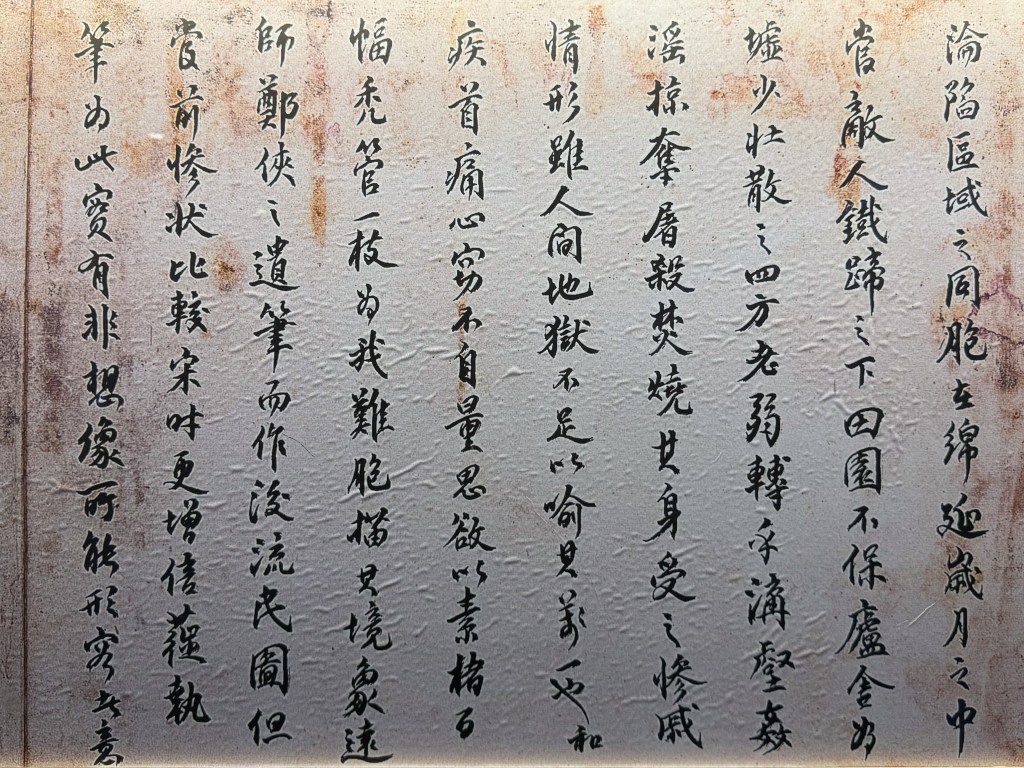 淪陷區域之同胞在綿延歲月之中
當敵人鐵蹄之下田園不保廬舍為
墟少壯散之四方老弱轉乎溝壑姦
淫掠奪屠殺焚燒其身受之慘戚
情形雖人間地獄不足以喻其萬一也和
疾首痛心竊不自量思欲以素楮百
幅禿管一枝為我難胞描其境象遠
師鄭俠之遺筆而作後流民圖但
當前慘狀比較宋時更增倍蓰執
筆為此實有非想像所能形容者意